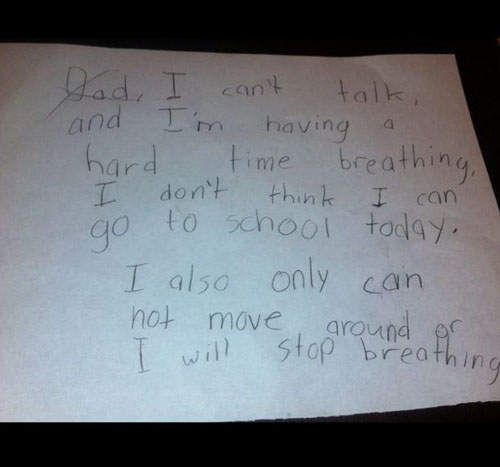 Dad, I can't talk,
and I'm having a
hard time breathing.
I don't think I can
go to school today.
I also only can
not move around or
I will stop breathing